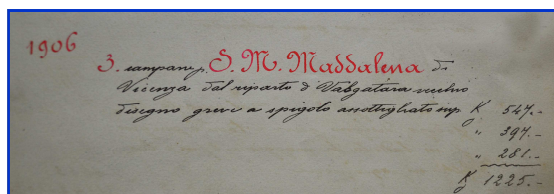 1906
3. campane p. S. M. Maddalena di
Vicenza dal riparto d Valgatara vecchio
disegno greve a spigolo assottigliato sup. K 547.-
" 397.-
" 281.-
K 1225.-